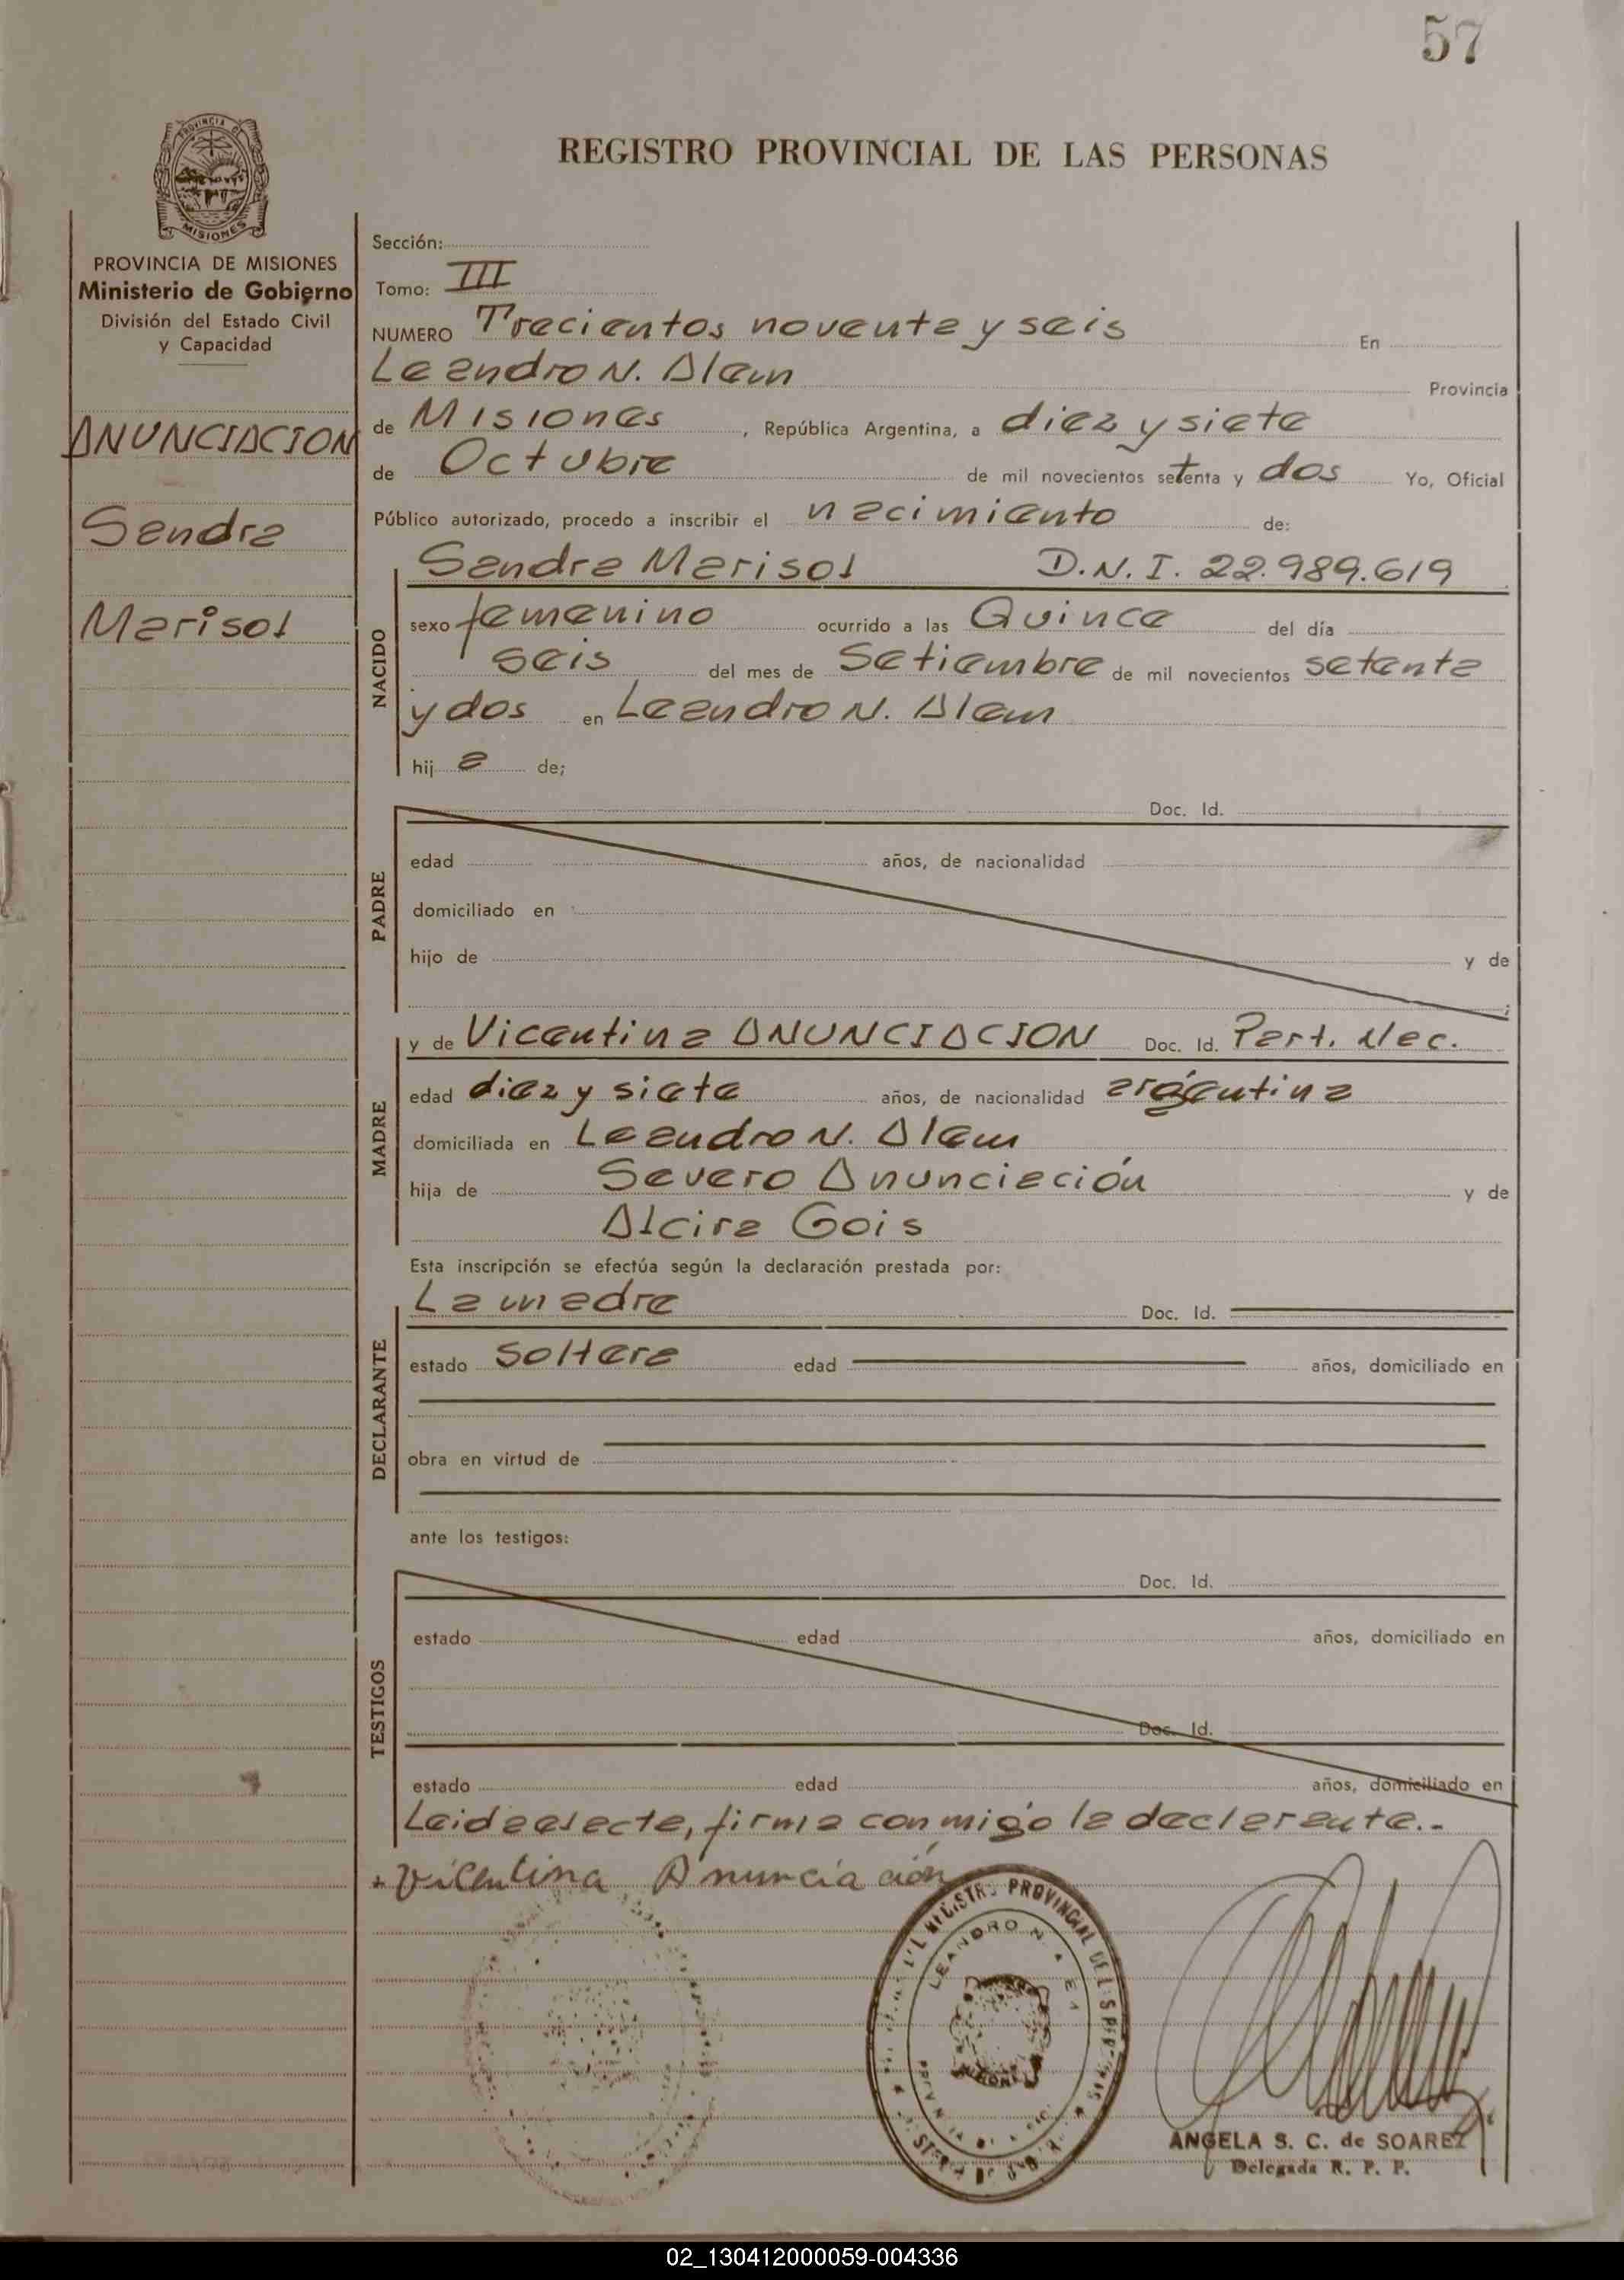 57
REGISTRO PROVINCIAL DE LAS PERSONAS
PROVINCIA DE
MISIONES
PROVINCIA DE MISIONES
Ministerio de Gobierno
División del Estado Civil
y Capacidad
ANUNCIACION
Sandra
Marisol
Sección:
Tomo: III
NUMERO Trecientos noventa y seis En
Leandro N. Alem Provincia
de Misiones, República Argentina, a diez y siete
de Octubre de mil novecientos setenta y dos Yo, Oficial
Público autorizado, procedo a inscribir el nacimiento de:
NACIDO
Sandra Marisol D.N.I. 22.989.619
sexo femenino ocurrido a las Quince del día
seis del mes de Setiembre de mil novecientos setenta
y dos en Leandro N. Alem
hij a de;
PADRE
Doc. Id.
edad años, de nacionalidad
domiciliado en
hijo de y de
MADRE
y de Vicentina ANUNCIACION Doc. Id. Part. Nec.
edad diez y siete años, de nacionalidad argentina
domiciliada en Leandro N. Alem
hija de Severo Anunciación y de
Alcira Gois
Esta inscripción se efectúa según la declaración prestada por:
DECLARANTE
La madre Doc. Id.
estado soltera edad años, domiciliado en
obra en virtud de
ante los testigos:
TESTIGOS
Doc. Id.
estado edad años, domiciliado en
Doc. Id.
estado edad años, domiciliado en
Leida el acta, firma conmigo la declarante.-
+ Vicentina Anunciación
REGISTRO PROVINCIAL DE LAS PERSONAS
LEANDRO N. ALEM
ANGELA S. C. de SOAREZ
Delegada R. P. P.
02_130412000059-004336